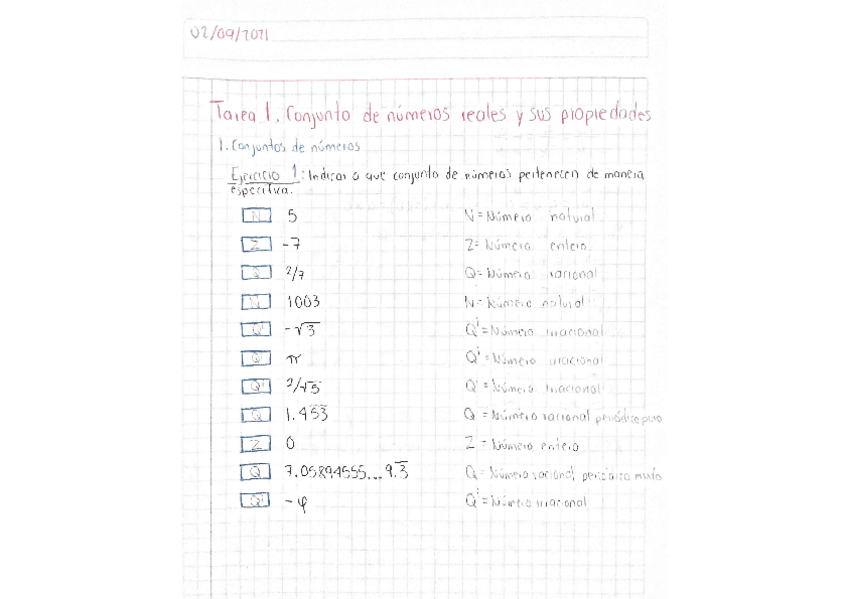 02/09/2021
Tarea 1. Conjunto de números reales y sus propiedades
1. Conjuntos de números
Ejercicio 1: Indicar a que conjunto de números pertenecen de manera
especifica.
N 5 N = Número natural
Z -7 Z = Número entero
Q 2/7 Q = Número racional
N 1003 N = Número natural
Q' -√3 Q' = Número irracional
Q' π Q' = Número irracional
Q' 2/√5 Q' = Número irracional
Q 1.453 Q = Número racional periódico puro
Z 0 Z = Número entero
Q 7.05894555... 9.3 Q = Número racional periódico mixto
Q' -φ Q' = Número irracional